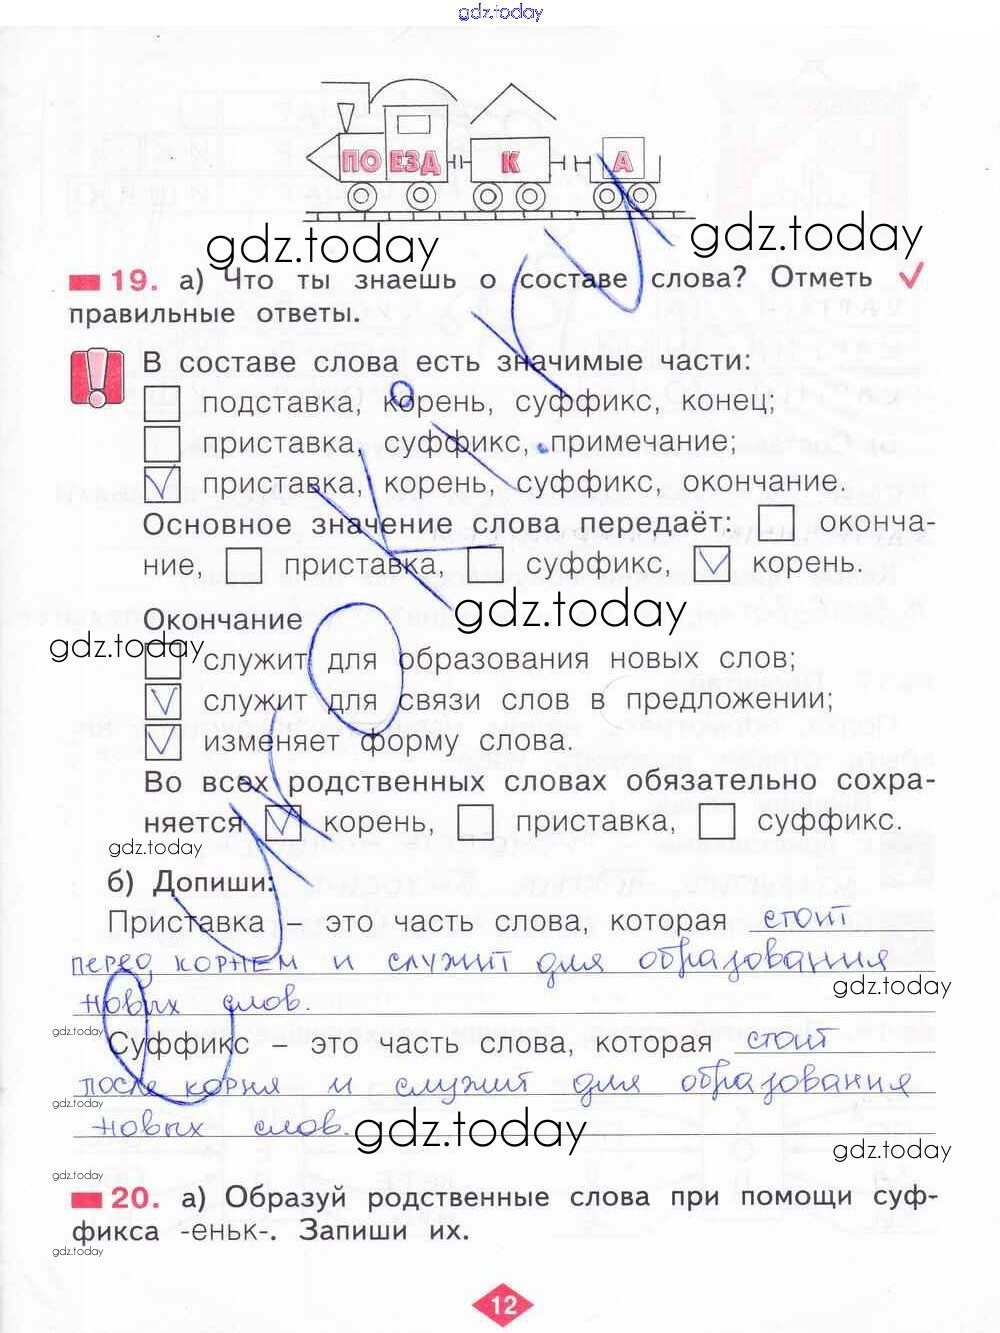 gdz.today
ПОЕЗД К А
gdz.today gdz.today
19. а) Что ты знаешь о составе слова? Отметь ✓
правильные ответы.
В составе слова есть значимые части:
подставка, корень, суффикс, конец;
приставка, суффикс, примечание;
приставка, корень, суффикс, окончание.
Основное значение слова передаёт: оконча-
ние, приставка, суффикс, корень.
gdz.today
Окончание
gdz.today
служит для образования новых слов;
служит для связи слов в предложении;
изменяет форму слова.
Во всех родственных словах обязательно сохра-
няется корень, приставка, суффикс.
gdz.today
б) Допиши:
Приставка – это часть слова, которая стоит
перед корнем и служит для образования
gdz.today
новых слов.
gdz.today
Суффикс – это часть слова, которая стоит
после корня и служит для образования
gdz.today
новых слов.
gdz.today
gdz.today
gdz.today
20. а) Образуй родственные слова при помощи суф-
фикса -еньк-. Запиши их.
gdz.today
12